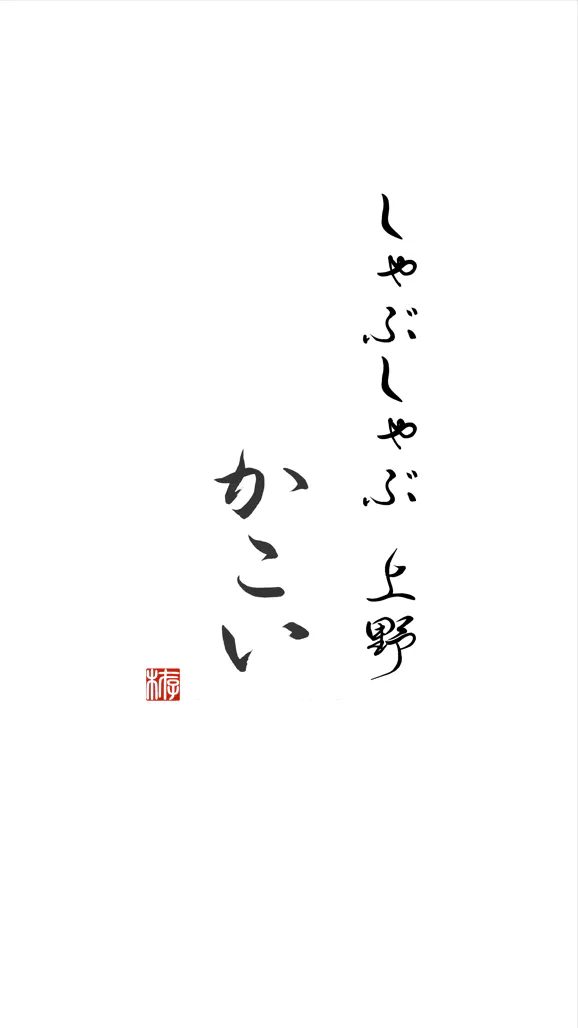 しゃぶしゃぶ 上野
かこい
栫